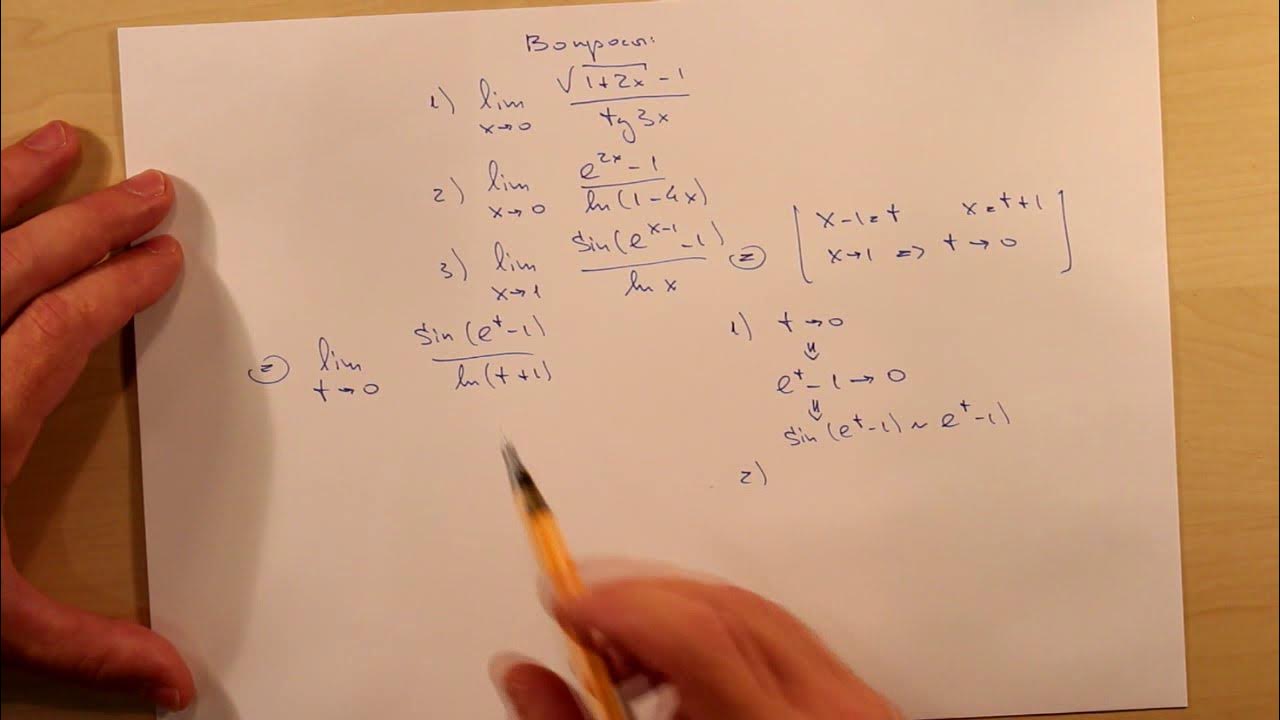 Вопросы:
1) lim x→0 (√(1+2x) - 1) / (tg 3x)
2) lim x→0 (e^(2x) - 1) / (ln(1-4x))
3) lim x→1 (sin(e^(x-1) - 1)) / (ln x) =
[ x-1=t x=t+1
x→1 => t→0 ]
= lim t→0 (sin(e^t-1)) / (ln(t+1))
1) t→0
⇓
e^t - 1 → 0
⇓
sin(e^t-1) ~ e^t-1)
2)